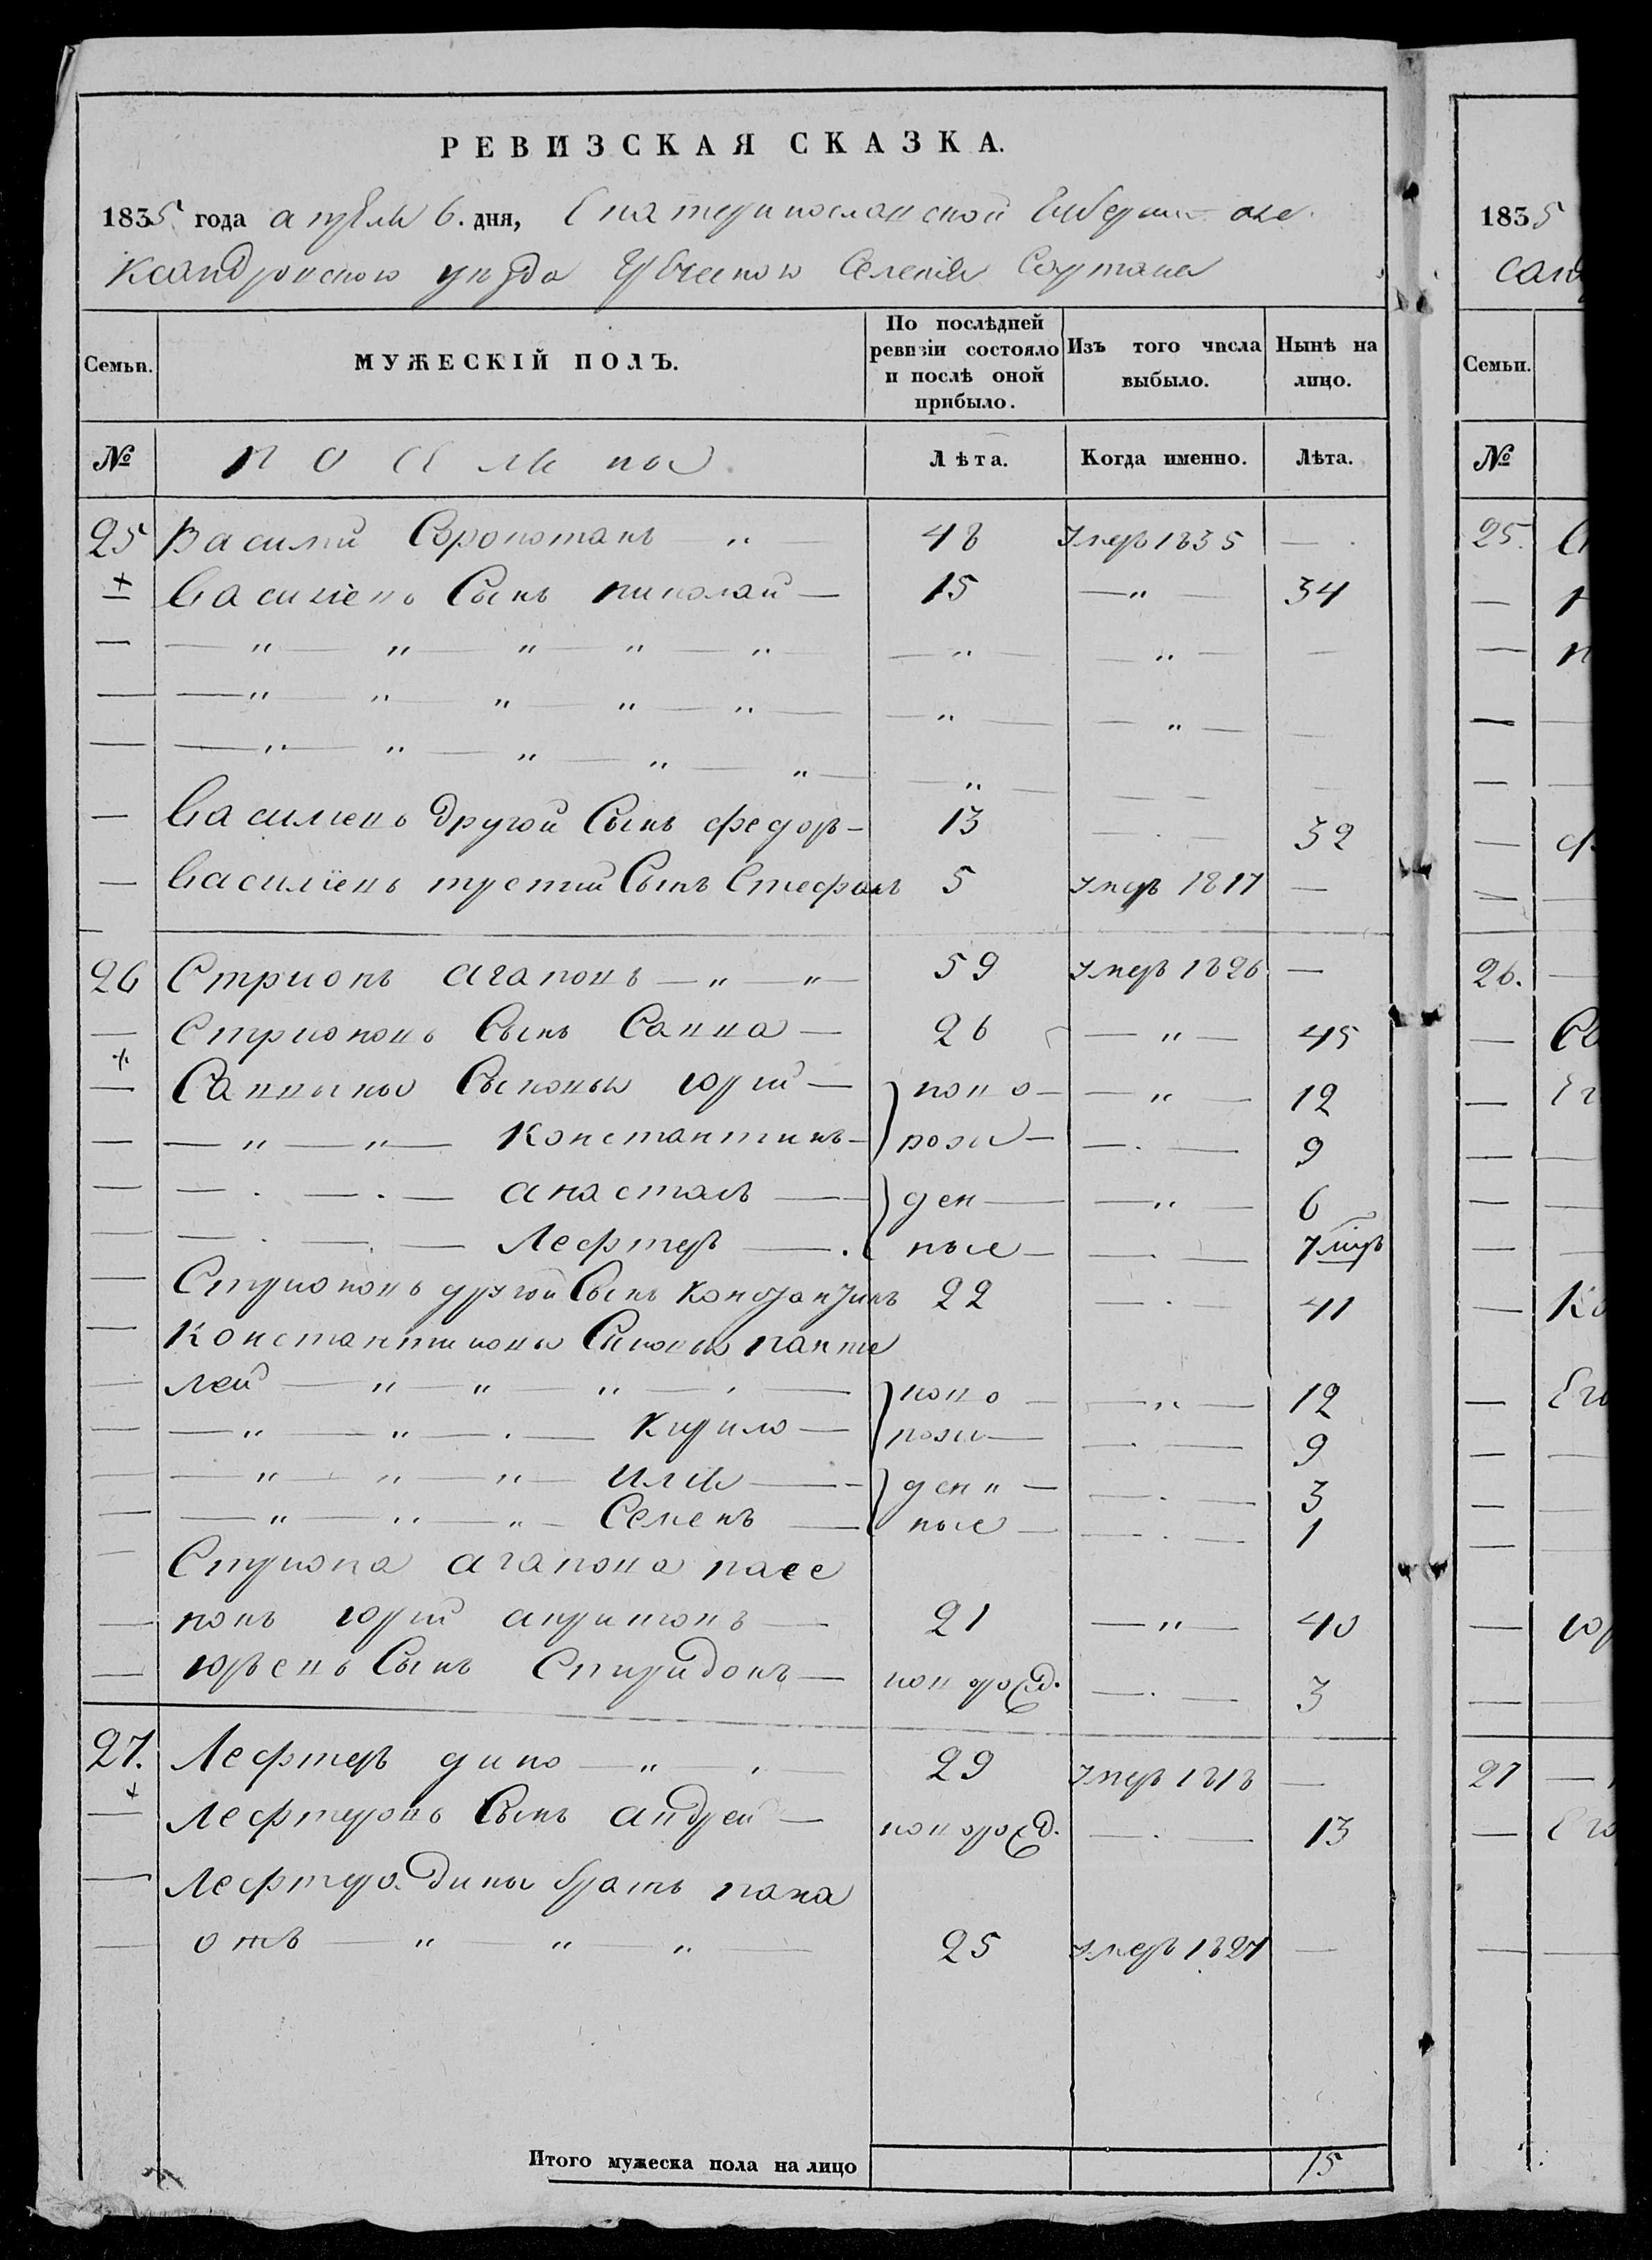 РЕВИЗСКАЯ СКАЗКА.
1835 года апреля 6. дня, Екатеринославской Губернии Але
ксандровского уезда Селения Сартана
Семьи.
МУЖЕСКІЙ ПОЛЪ.
По послѣдней ревизіи состояло и послѣ оной прибыло.
Изъ того числа выбыло.
Нынѣ на лицо.
№
Лѣта.
Когда именно.
Лѣта.
25 Василий — „ — 48 умеръ 1835 —
Васильевъ Сынъ николай — 15 — „ — 34
Васильевъ другой Сынъ федоръ — 13 — 32
Васильевъ третий Сынъ Стефанъ 5 умеръ 1817 —
26 Стрионъ агаповъ — „ — „ — 59 умеръ 1826 —
Стрионовъ Сынъ Савва — 26 — „ — 45
Саввины Сыновья юрий — ново — „ — 12
— „ — „ — Константинъ — рож — 9
анастасъ — ден — „ — 6
Лефтеръ — ные — 7 мцъ
Стрионовъ другой Сынъ Константинъ 22 — 41
Константиновы Сыновья панте
лей — „ — „ — „ — ново — „ — 12
— „ — „ — Кирило — рож — 9
— „ — „ — „ — илия — ден „ — 3
— „ — „ — „ — Семенъ — ные — 1
Стриона агапова пасе
нокъ юрий — 21 — „ — 40
юрьевъ Сынъ Спиридонъ — новорожд. — 3
27. Лефтеръ дико — „ — 29 умеръ 1818 —
Лефтеровъ Сынъ андрей — новорожд. — 13
Лефтера дики братъ пана
отъ — „ — „ — „ — 25 умеръ 1827 —
Итого мужеска пола на лицо 15
1835
Семьи.
№
25.
26.
27